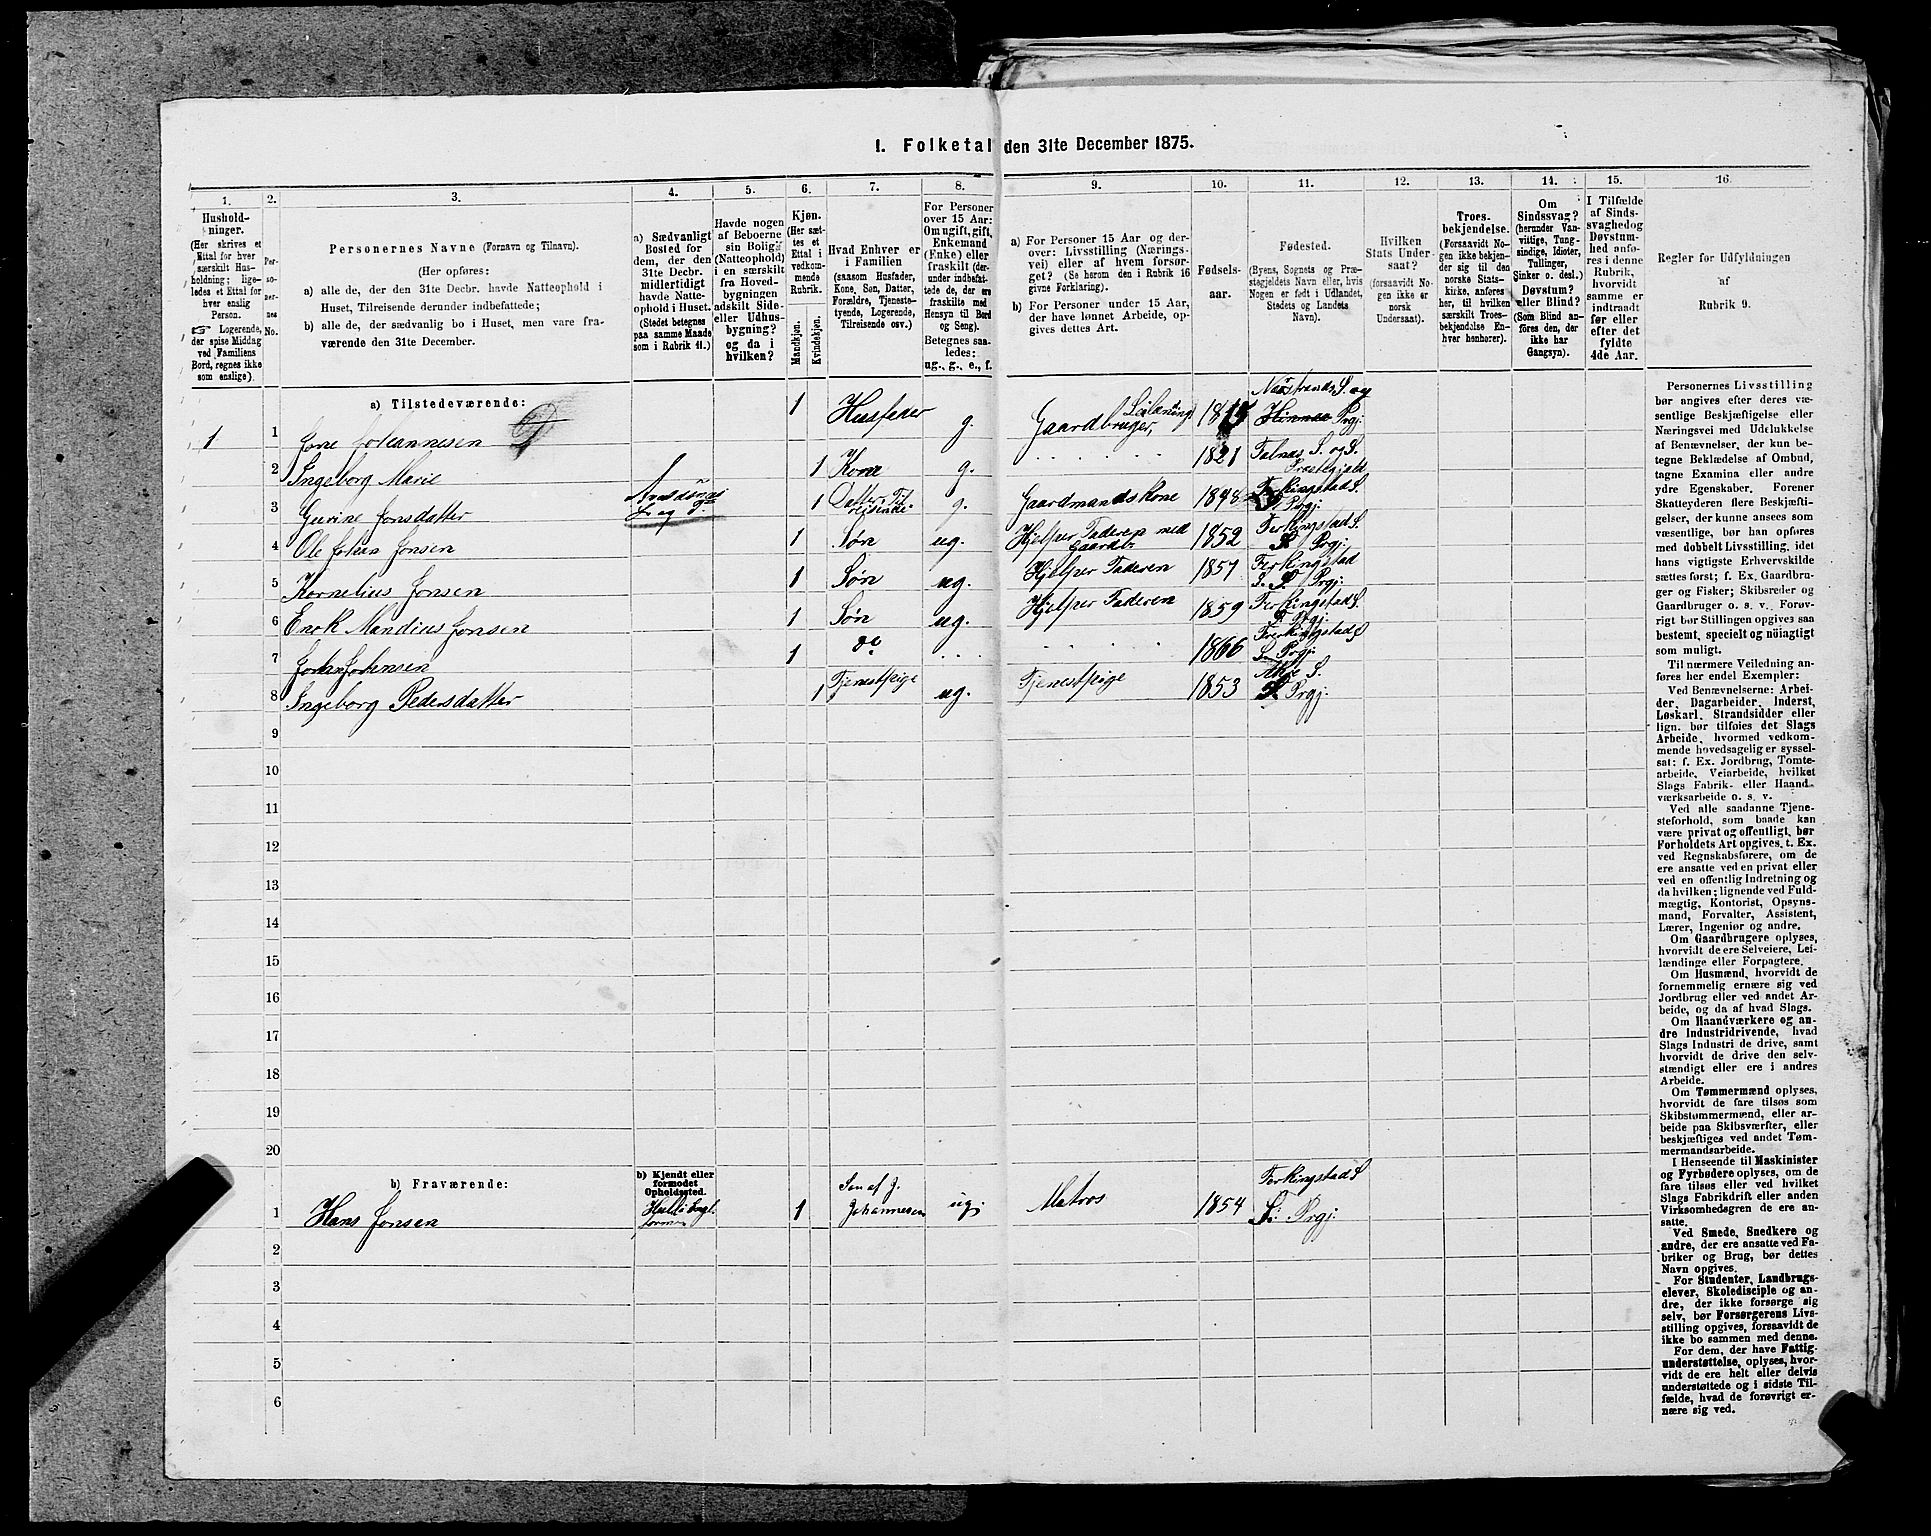 I. Folketal den 31te December 1875.
1.
Hushold-
ninger.
(Her skrives et
Ettal for hver
særskilt Hus-
holdning; lige-
ledes et Ettal for
hver enslig
Person.
Logerende,
der spise Middag
ved Familiens
Bord, regnes ikke
som enslige).
2.
Per-
so-
ner-
nes
No.
3.
Personernes Navne (Fornavn og Tilnavn).
(Her opføres:
a) alle de, der den 31te Decbr. havde Natteophold i
Huset, Tilreisende derunder indbefattede;
b) alle de, der sædvanlig bo i Huset, men vare fra-
værende den 31te December.
4.
a) Sædvanligt
Bosted for
dem, der den
31te Decbr.
midlertidigt
havde Natte-
ophold i Huset.
(Stedet betegnes
paa samme Maade
som i Rubrik 11.)
5.
Havde nogen
af Beboerne
sin Bolig
(Natteophold)
i en særskilt
fra Hoved-
bygningen
adskilt Side-
eller Udhus-
bygning?
og da i
hvilken?
6.
Kjøn.
(Her sæt-
tes et
Ettal i
vedkom-
mende
Rubrik.
Mandkjøn.
Kvindekjøn.
7.
Hvad Enhver er
i Familien
(saasom Husfader,
Kone, Søn, Datter,
Forældre, Tjeneste-
tyende, Logerende,
Tilreisende osv.)
8.
For Personer
over 15 Aar:
Om ugift, gift,
Enkemand
(Enke) eller
fraskilt (der-
under indbefat-
tede de, der ere
fraskilte med
Hensyn til Bord
og Seng).
Betegnes saa-
ledes:
ug., g., e., f.
9.
a) For Personer 15 Aar og der-
over: Livsstilling (Nærings-
vei) eller af hvem forsør-
get? (Se herom den i Rubrik 16
givne Forklaring).
b) For Personer under 15 Aar,
der have lønnet Arbeide, op-
gives dettes Art.
10.
Fødsels-
aar.
11.
Fødested.
(Byens, Sognets og Præ-
stegjeldets Navn eller, hvis
Nogen er født i Udlandet,
Stedets og Landets
Navn).
12.
Hvilken
Stats Under-
saat?
(forsaavidt No-
gen ikke er
norsk
Undersaat).
13.
Troes-
bekjendelse.
(Forsaavidt No-
gen ikke bekjen-
der sig til den
norske Stats-
kirke, anføres
her, til hvilken
særskilt Troes-
bekjendelse En-
hver henhører).
14.
Om
Sindssvag?
(herunder Van-
vittige, Tung-
sindige, Idioter,
Tullinger,
Sinker o. desl.)
Døvstum?
eller Blind?
(Som Blind an-
føres den, der
ikke har
Gangsyn).
15.
I Tilfælde
af Sinds-
svaghed og
Døvstum-
hed anfø-
res i denne
Rubrik,
hvorvidt
samme er
indtraadt
før eller
efter det
fyldte
4de Aar.
16.
Regler for Udfyldningen
af
Rubrik 9.
a) Tilstedeværende:
1 1 Jone Johannesen 1 Husfader g. Gaardbruger, Leilænding 18 Nærstrands S. og Hinnaa Prgj.
2 Ingeborg Marie 1 Kone g. 1821 Falnæs S. og S. Præstegjæld
3 Gurine Jonsdatter 1 Datter, Til reisende g. Gaardmandskone 1848 Ferkingstad S. Prgj.
4 Ole Johan Jonsen 1 Søn ug. Hjelper Faderen med Gaardb. 1852 Ferkingstad S. Prgj.
5 Kornelius Jonsen 1 Søn ug. Hjelper Faderen 1857 Ferkingstad S. Prgj.
6 Enok Mandius Jonsen 1 Søn ug. Hjelper Faderen 1859 Ferkingstad S. Prgj.
7 Johan Johnsen 1 do 1866 Ferkingstad S. Prgj.
8 Ingeborg Pedersdatter 1 Tjenestpige ug. Tjenestpige 1853 S. Prgj.
9
10
11
12
13
14
15
16
17
18
19
20
b) Fraværende:
b) Kjendt eller
formodet
Opholdssted.
1 Hans Jonsen 1 Søn af J. Johannesen ug. Matros 1854 Ferkingstad S. Prgj.
2
3
4
5
6
Personernes Livsstilling
bør angives efter deres væ-
sentlige Beskjæftigelse eller
Næringsvei med Udelukkelse
af Benævnelser, der kun be-
tegne Beklædelse af Ombud,
tagne Examina eller andre
ydre Egenskaber. Forener
Skatteyderen flere Beskjæfti-
gelser, der kunne ansees som
væsentlige, bør han opføres
med dobbelt Livsstilling, idet
hans vigtigste Erhvervskilde
sættes først; f. Ex. Gaardbru-
ger og Fisker; Skibsreder og
Gaardbruger o. s. v. Forøv-
rigt bør Stillingen opgives saa
bestemt, specielt og nøiagtigt
som muligt.
Til nærmere Veiledning an-
føres her endel Exempler:
Ved Benævnelserne: Arbei-
der, Dagarbeider, Inderst,
Løskarl, Strandsidder eller
lign. bør tilføies det Slags
Arbeide, hvormed vedkom-
mende hovedsagelig er syssel-
sat: f. Ex. Jordbrug, Tomte-
arbeide, Veiarbeide, hvilket
Slags Fabrik- eller Haand-
værksarbeide o. s. v.
Ved alle saadanne Tjene-
steforhold, som baade kan
være privat og offentligt, bør
Forholdets Art opgives, t. Ex.
ved Regnskabsførere, om de
ere ansatte ved en privat eller
ved en offentlig Indretning og
da hvilken; lignende ved Fuld-
mægtig, Kontorist, Opsyns-
mand, Forvalter, Assistent,
Lærer, Ingeniør og andre.
Om Gaardbrugere oplyses,
hvorvidt de ere Selveiere, Lei-
lændinge eller Forpagtere.
Om Husmænd, hvorvidt de
fornemmelig ernære sig ved
Jordbrug eller ved andet Ar-
beide, og da af hvad Slags.
Om Haandværkere og an-
dre Industridrivende, hvad
Slags Industri de drive, samt
hvorvidt de drive den selv-
stændigt eller ere i andres
Arbeide.
Om Tømmermænd oplyses,
hvorvidt de fare tilsøs som
Skibstømmermænd, eller ar-
beide paa Skibsværfter, eller
beskjæftiges ved andet Tøm-
mermandsarbeide.
I Henseende til Maskinister
og Fyrbødere oplyses, om de
fare tilsøs eller ved hvilket
Slags Fabrikdrift eller anden
Virksomhedsgren de ere an-
satte.
Ved Smede, Snedkere og
andre, der ere ansatte ved Fa-
briker og Brug, bør dettes
Navn opgives.
For Studenter, Landbrugs-
elever, Skoledisciple og an-
dre, der ikke forsørge sig
selv, bør Forsørgerens Livs-
stilling opgives, forsaavidt de
ikke bo sammen med denne.
For dem, der have Fattig-
understøttelse, oplyses, hvor-
vidt de ere helt eller delvis
understøttede og i sidste Til-
fælde, hvad de forøvrigt er-
nære sig ved.